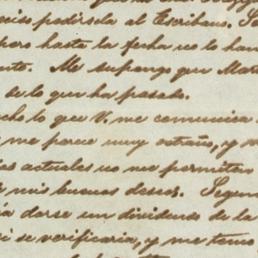 ciso pedírsela al Escribano. S
pero hasta la fecha no lo han
nto. Me supongo que Mar
de lo que ha pasado.
cho lo que V. me comunica
me parece muy extraño, y
as actuales no me permiten
mis buenos deseos. Segun
ía darse un dividendo de la
si se verificaria, y me temo